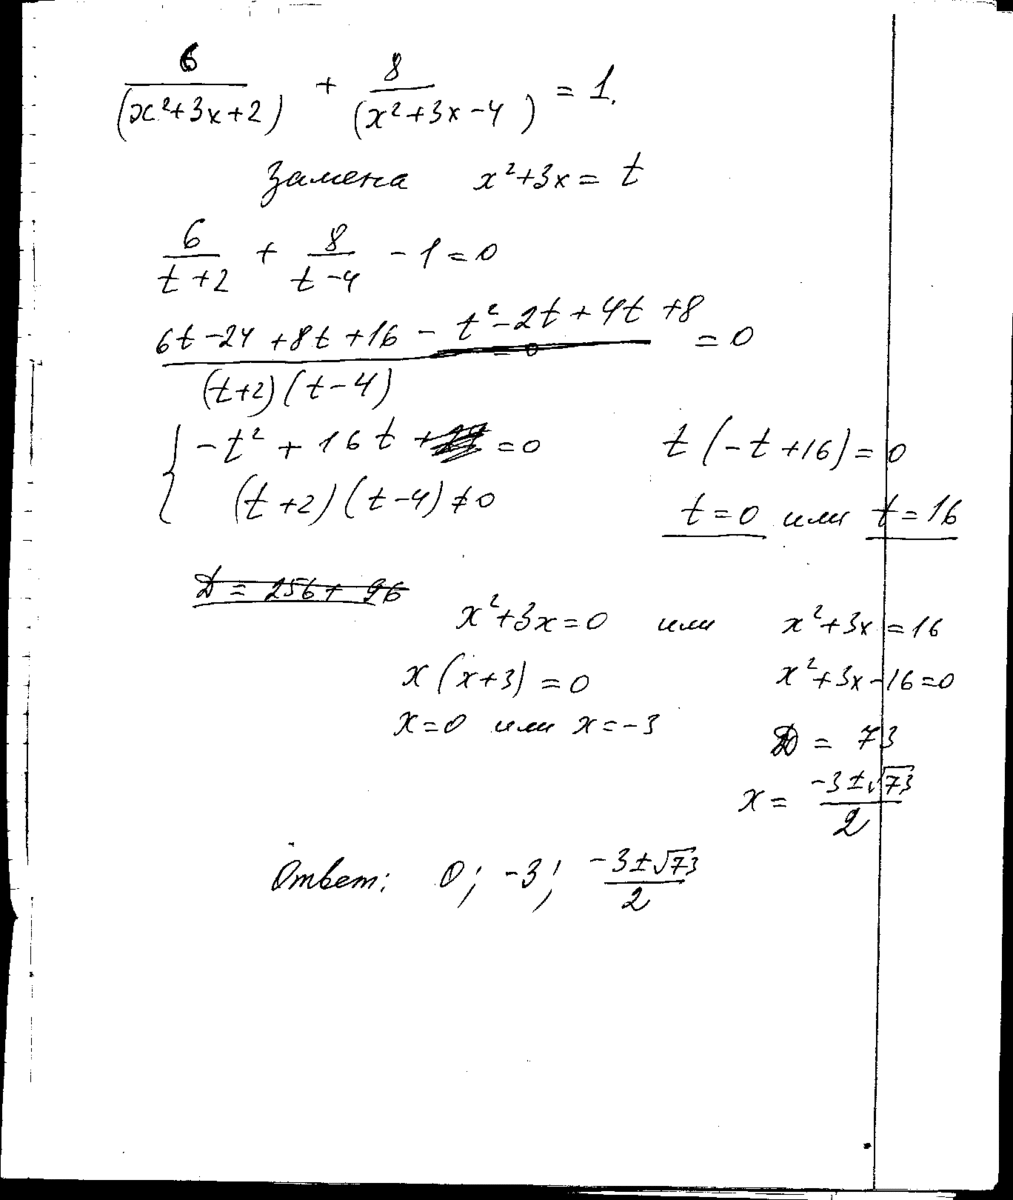 6/(x²+3x+2) + 8/(x²+3x-4) = 1.
Замена x²+3x = t
6/(t+2) + 8/(t-4) - 1 = 0
(6t-24+8t+16 - t²-2t+4t+8)/((t+2)(t-4)) = 0
{ -t²+16t = 0 t(-t+16) = 0
(t+2)(t-4) ≠ 0 t=0 или t=16
D = 256+96
x²+3x=0 или x²+3x=16
x(x+3)=0 x²+3x-16=0
x=0 или x=-3 D = 73
x = (-3±√73)/2
Ответ: 0; -3; (-3±√73)/2